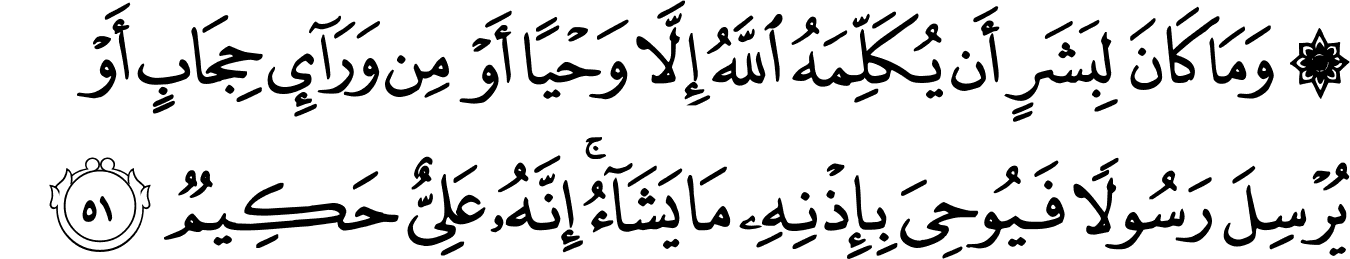 ۞ وَمَا كَانَ لِبَشَرٍ أَن يُكَلِّمَهُ ٱللَّهُ إِلَّا وَحْيًا أَوْ مِن وَرَآئِ حِجَابٍ أَوْ
يُرْسِلَ رَسُولًا فَيُوحِىَ بِإِذْنِهِۦ مَا يَشَآءُ ۚ إِنَّهُۥ عَلِىٌّ حَكِيمٌ ٥١